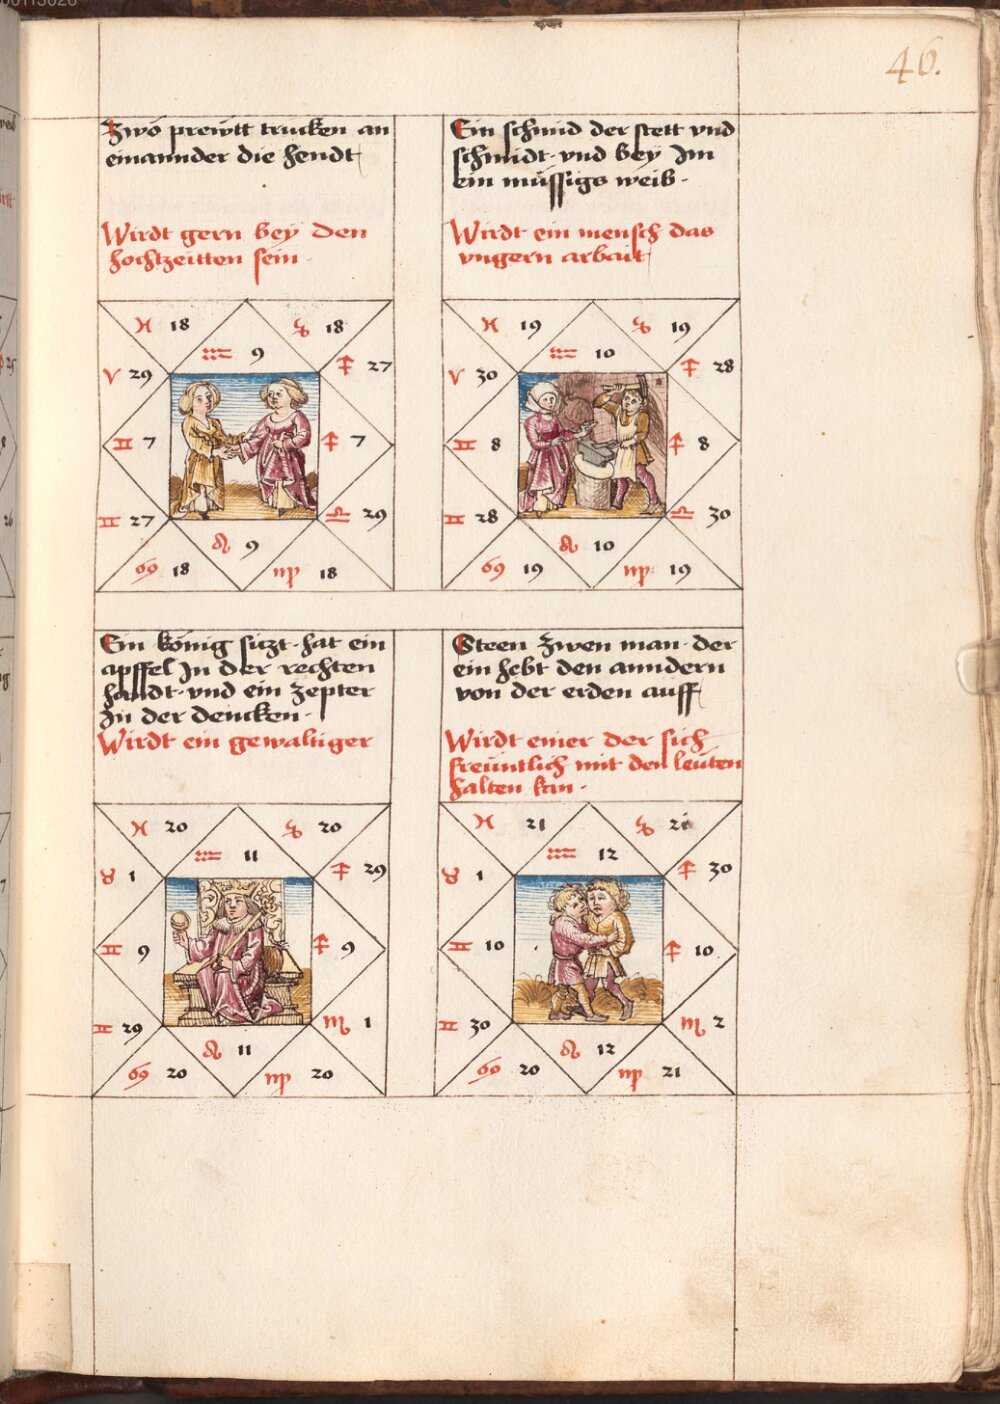 46.
Zwo prewtt trucken an
einannder die hendt
Wirdt gern bey den
hochtzeitten sein
♓ 18
♑ 18
♒ 9
♈ 29
♐ 27
♊ 7
♐ 7
♊ 27
♎ 29
♌ 9
♋ 18
♍ 18
Ein schmid der stett vnd
schmidt vnd bey Im
ein müssigs weib
Wirdt ein mensch das
vngern arbait
♓ 19
♑ 19
♒ 10
♈ 30
♐ 28
♊ 8
♐ 8
♊ 28
♎ 30
♌ 10
♋ 19
♍ 19
Ein könig sitzt hat ein
apffel In der rechten
handt vnd ein Zepter
In der dencken
Wirdt ein gewaltiger
♓ 20
♑ 20
♒ 11
♉ 1
♐ 29
♊ 9
♐ 9
♊ 29
♏ 1
♌ 11
♋ 20
♍ 20
Steen Zwen man der
ein hebt den anndern
von der erden auff
Wirdt einer der sich
freuntlich mit den leuten
halten kan
♓ 21
♑
♒ 12
♉ 1
♐ 30
♊ 10
♐ 10
♊ 30
♏ 2
♌ 12
♋ 20
♍ 21